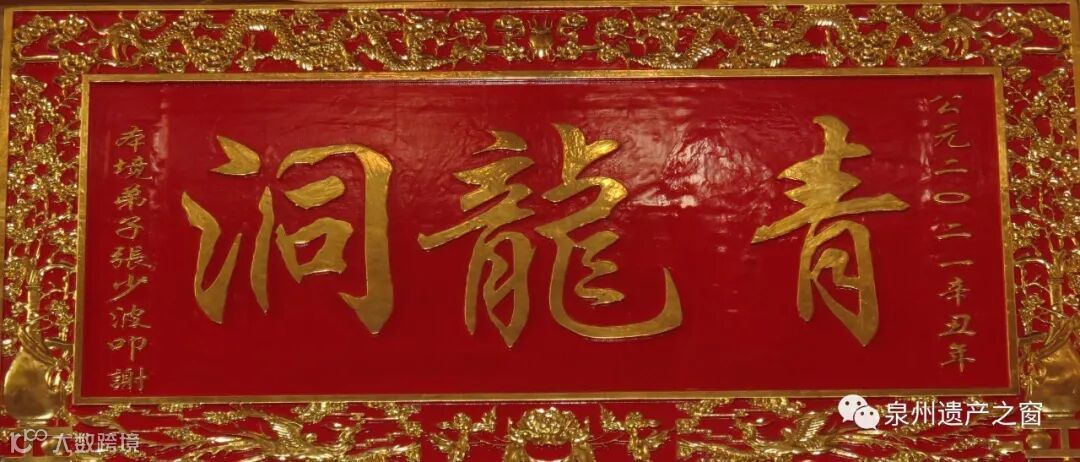 公元二〇二一辛丑年
青龍洞
本境弟子張少波叩謝
泉州遗产之窗
大数跨境